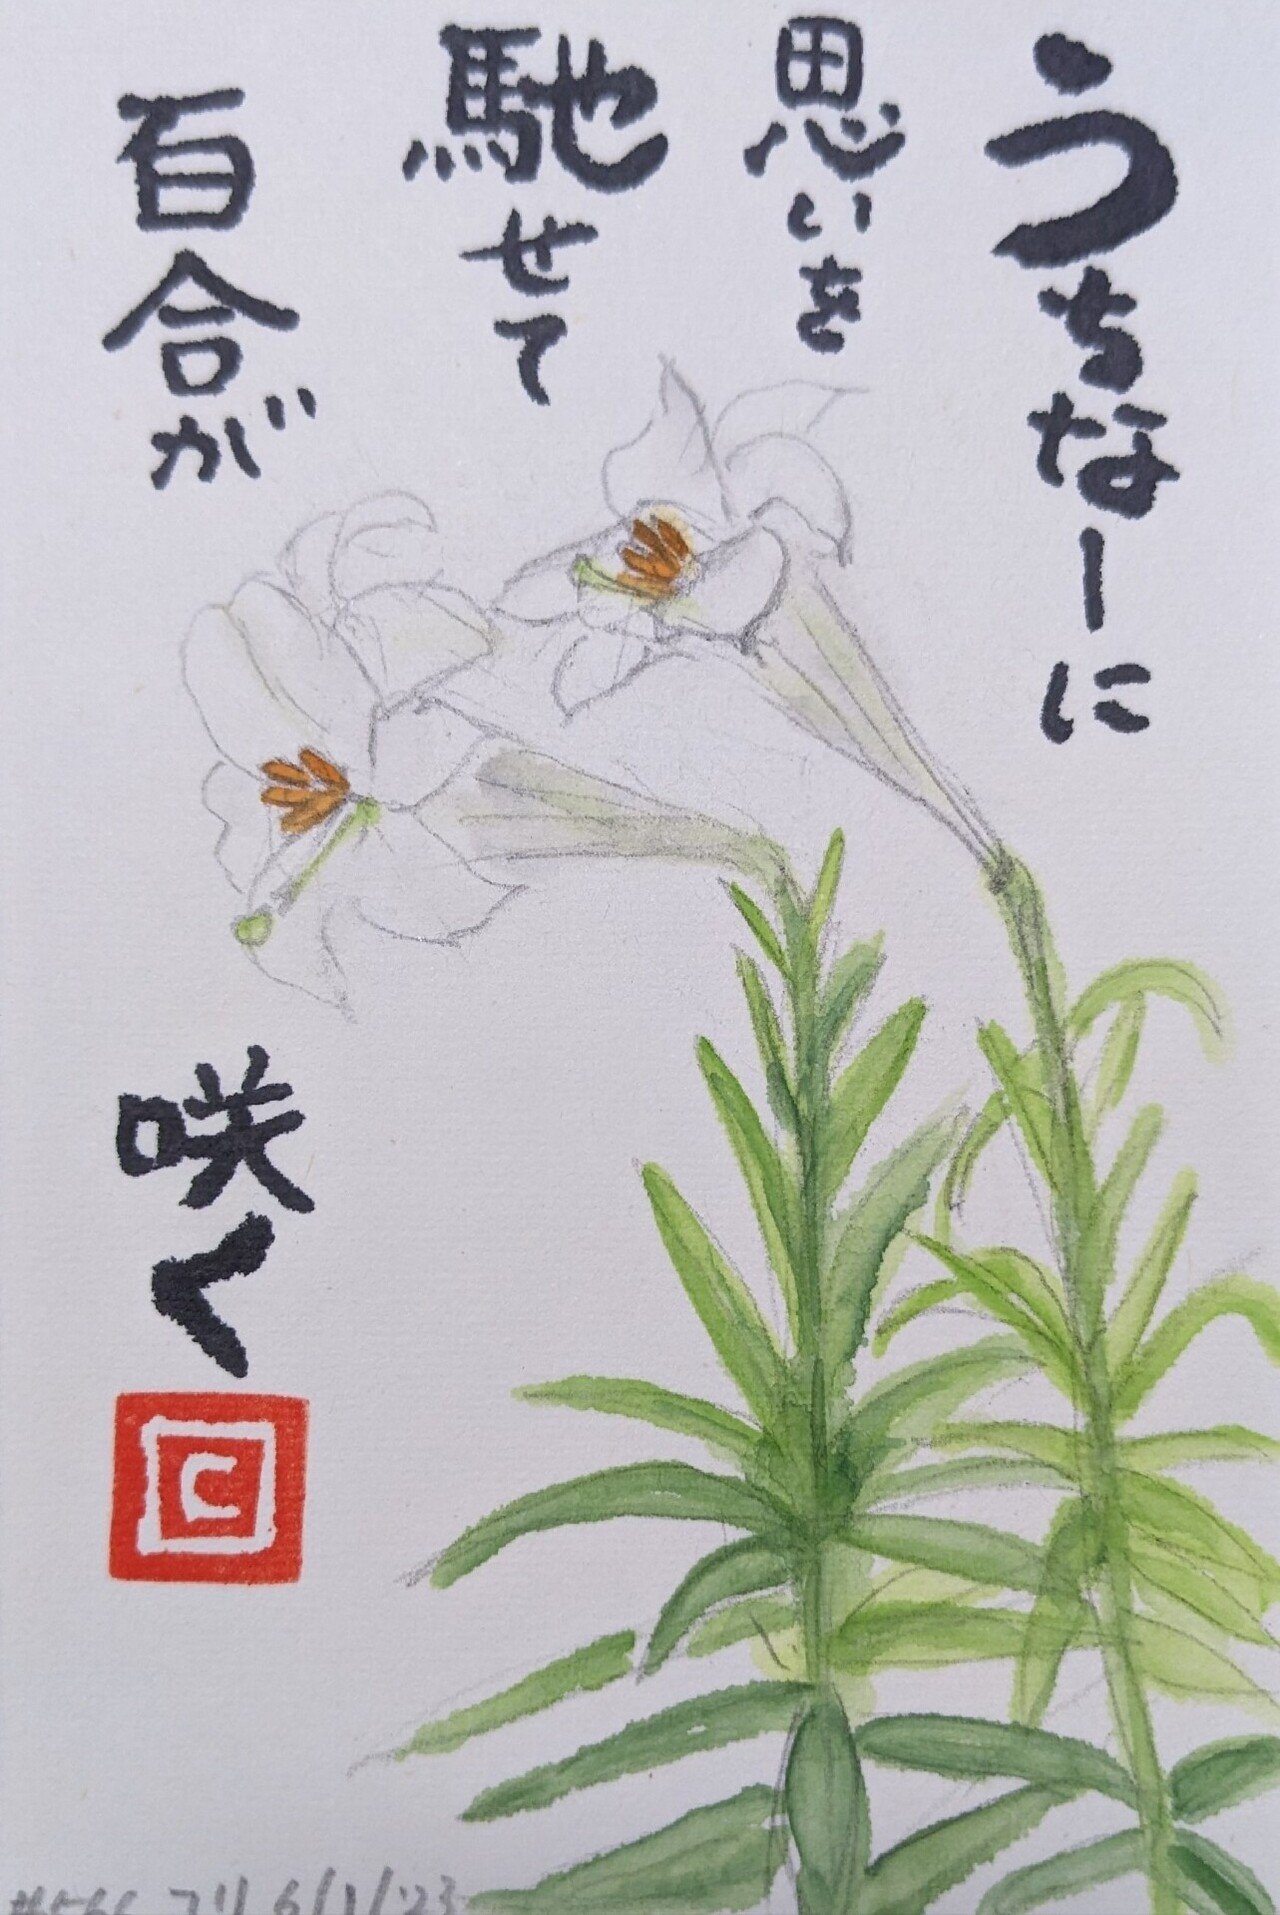 うちなーに
思いを
馳せて
百合が
咲く
C
ユリ 6/1/'23